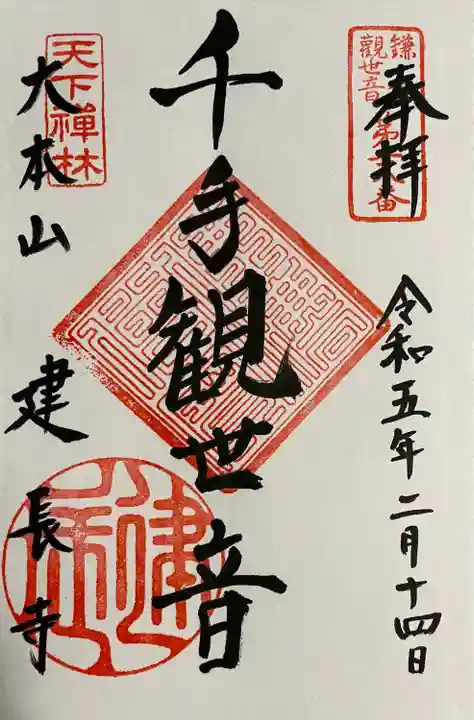 奉拝
鎌
觀世音
第
番
令和五年二月十四日
千手観世音
天下禅林
大本山 建長寺
建